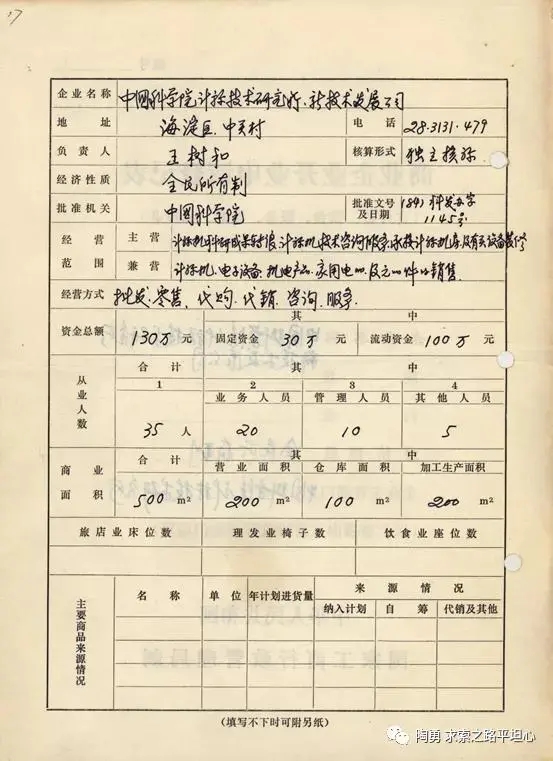 17
企业名称 中国科学院计算技术研究所新技术发展公司
地址 海淀区中关村 电话 28·3131·479
负责人 王树和 核算形式 独立核算
经济性质 全民所有制
批准机关 中国科学院 批准文号及日期 (84)科发办字1145号
经营范围 主营 计算机科研成果转让、计算机技术咨询服务、承接计算机房及有关设备装修
兼营 计算机、电子设备、机电产品、家用电器及元器件的销售
经营方式 批发、零售、代购、代销、咨询、服务
资金总额 130万元 其中 固定资金 30万元 流动资金 100万元
从业人数 合计 其中
1 2 3 4
业务人员 管理人员 其他人员
35人 20 10 5
商业面积 合计 其中
营业面积 仓库面积 加工生产面积
500 m² 200 m² 100 m² 200 m²
旅店业床位数 理发业椅子数 饮食业座位数
主要商品来源情况 名称 单位 年计划进货量 来源情况
纳入计划 自筹 代销及其他
(填写不下时可附另纸)
陶勇 求索之路平坦心